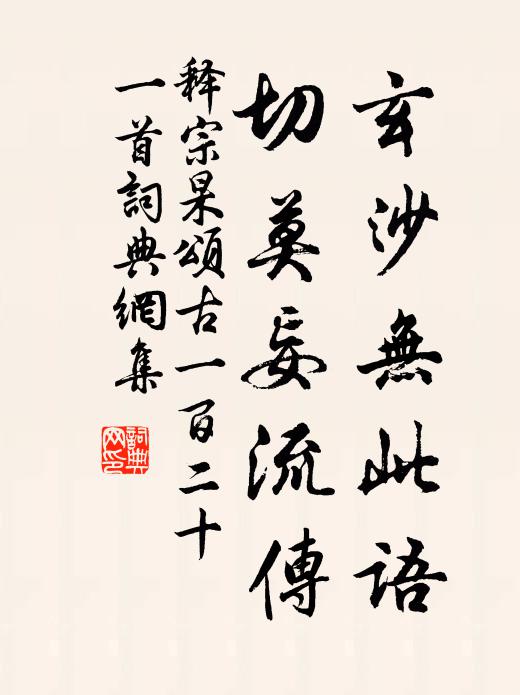 玄沙無此語
切莫妄流傳
释宗杲頌古一百二十
一首詞典網集
詞典網印